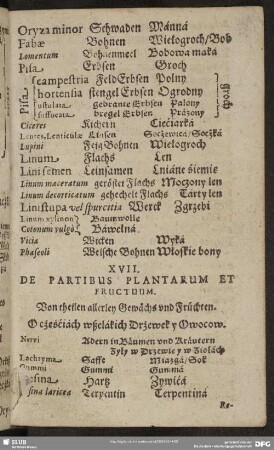 Oryza minor Schwaden Mánná
Fabæ Bohnen Wielogroch/Bob
Lomentum Bohnenmeel Bobowa maka
Pisa Erbsen Groch
Pisa campestria Feld Erbsen Polny groch
hortensia stengel Erbsen Ogrodny
ustulata gebrante Erbsen Palony
suffocata bregel Erbsen Prażony
Ciceres Kichern Ciećiorka
Lentes, Lenticulæ Linsen Soczewica/Soczká
Lupini Feig Bohnen Wielogroch
Linum Flachs Len
Lini semen Leinsamen Lniáne śiemie
Linum maceratum geröster Flachs Moczony len
Linum decorticatum gehechelt Flachs Tarty len
Lini stupa vel spurcitia Werck Zgrzebi
Linum xylinon Baumwolle
Cotonum vulgò Báwelná
Vicia Wicken Wyká
Phaseoli Welsche Bohnen Włoskie bony
XVII.
DE PARTIBUS PLANTARUM ET
FRUCTUUM.
Von theilen allerley Gewächs und Früchten.
O cześćiách wszelákich Drzewek y Owocow.
Nervi Adern in Bäumen und Kräutern
Żyły w Drzewie y w Ziołách
Lachryma Saffe Miazgá/Sok
Gummi Gummi Gummá
Resina Hartz Żywicá
sina laricea Terpentin Terpentiná
Re-